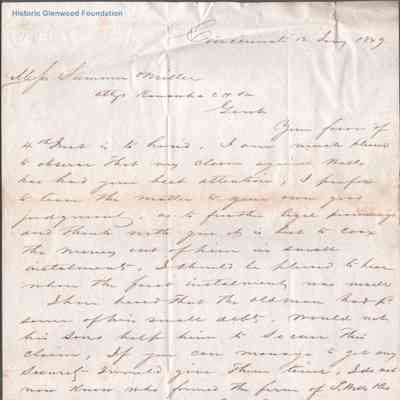 Historic Glenwood Foundation
Cincinnati 12 1849
Mess Summers & Miller
Attys Kanawha C H Va
Gents
Your favor of
4th Inst is to hand. I am much pleased
to observe that my claim against Wells
has had your best attention, I prefer
to leave the matter to your own good
judgment, as to further legal proceedings
and think with you it is best to coax
the money out of him in small
instalments, I should be pleased to hear
when the first instalment was made
I have heard that the old man had pd
some of his small debts. Would not
his sons help him to secure this
claim, If you can manage to get any
Security I would give them time, I do not
now know who formed the firm of